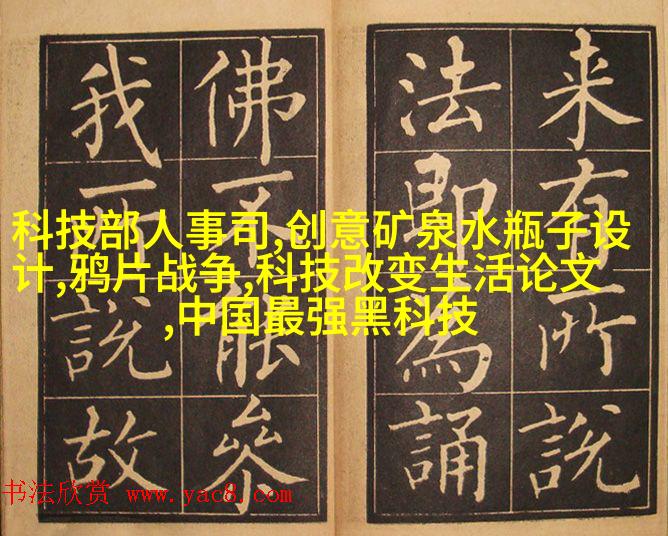 来有所說
法即為誦
佛不能叅
我所說故
科技部人事司,创意矿泉水瓶子设
计,鸦片战争,科技改变生活论文
,中国最强黑科技
书法欣赏 www.yac8.com